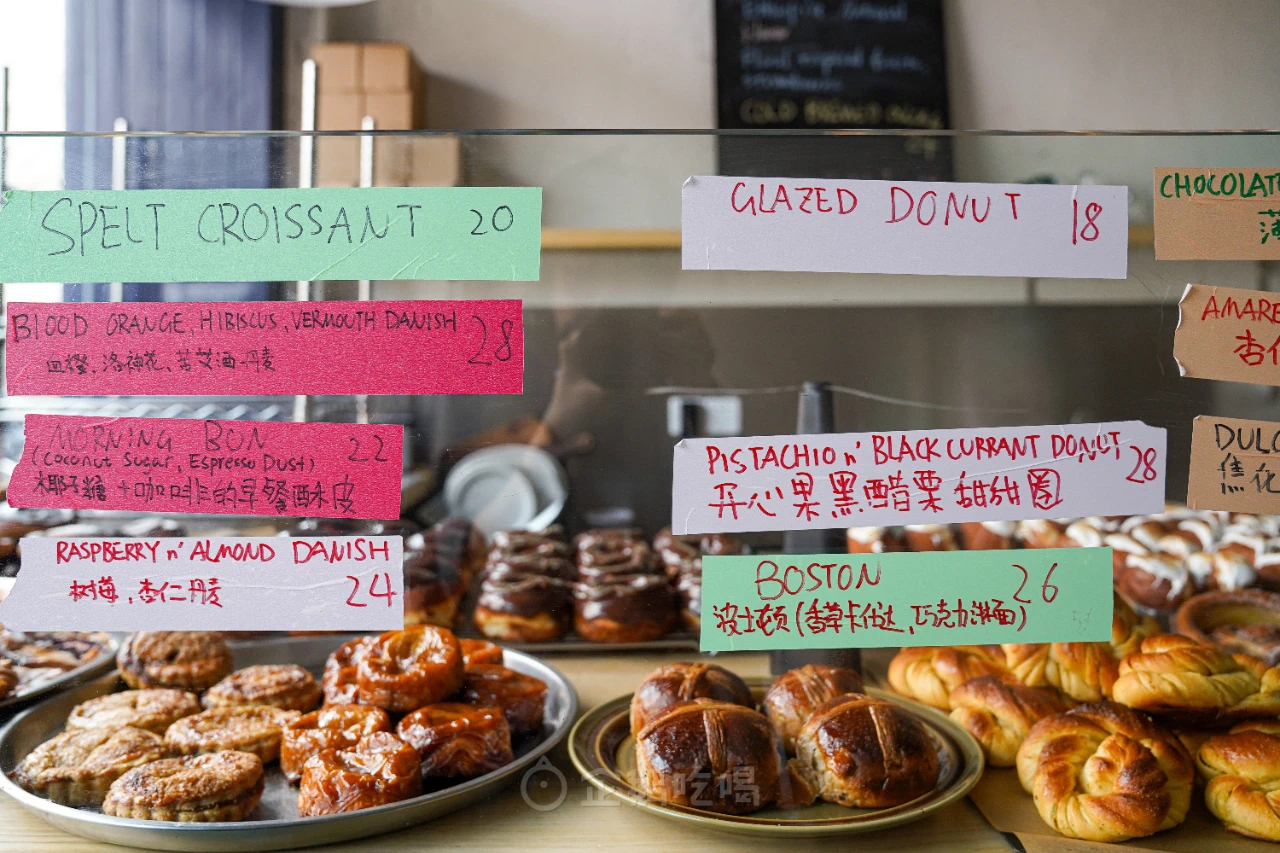 SPELT CROISSANT 20
BLOOD ORANGE, HIBISCUS, VERMOUTH DANISH 28
血橙、洛神花、苦艾酒丹麦
MORNING BON 22
(Coconut Sugar, Espresso Dust)
椰子糖+咖啡的早餐酥皮
RASPBERRY n' ALMOND DANISH
树莓、杏仁丹麦 24
GLAZED DONUT 18
PISTACHIO n' BLACK CURRANT DONUT 28
开心果黑醋栗甜甜圈
BOSTON 26
波士顿(香草卡仕达,巧克力淋面)
CHOCOLAT
薄
AMARE
杏仁
DULC
焦化
COLD
企鹅吃喝